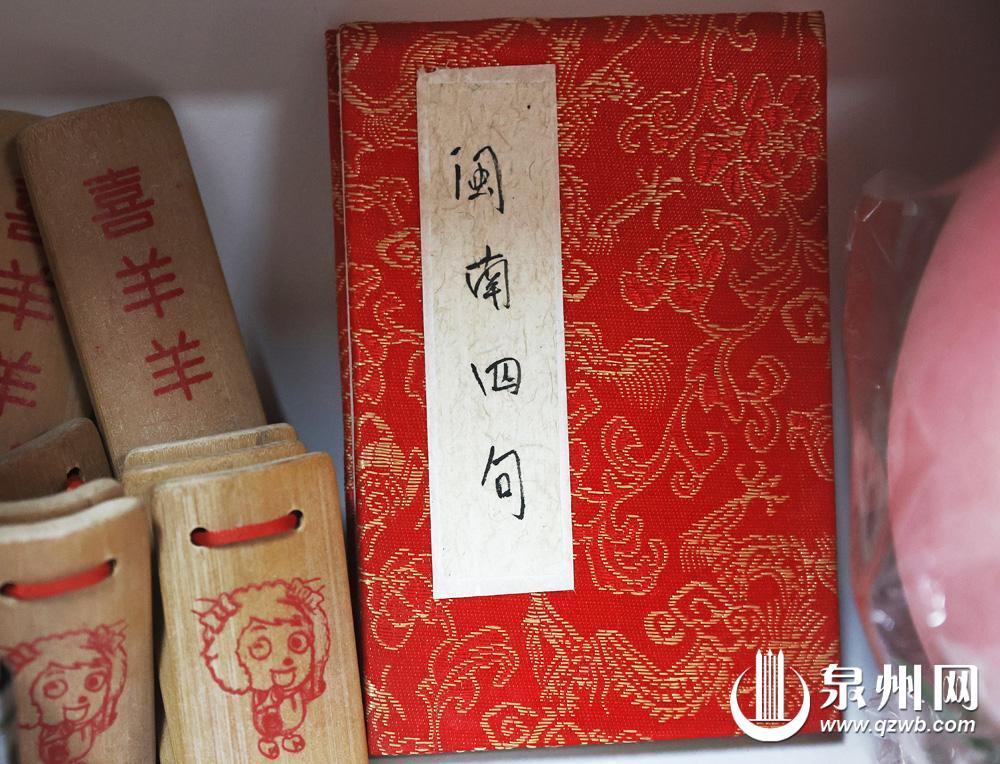 喜羊羊
喜羊羊
闽南四句
泉州网
www.qzwb.com